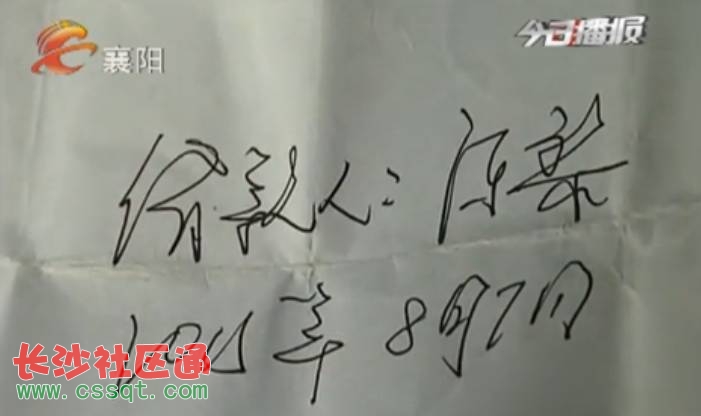 襄阳
今日播报
借款人：陈
年8月7日
长沙社区通
www.cssqt.com